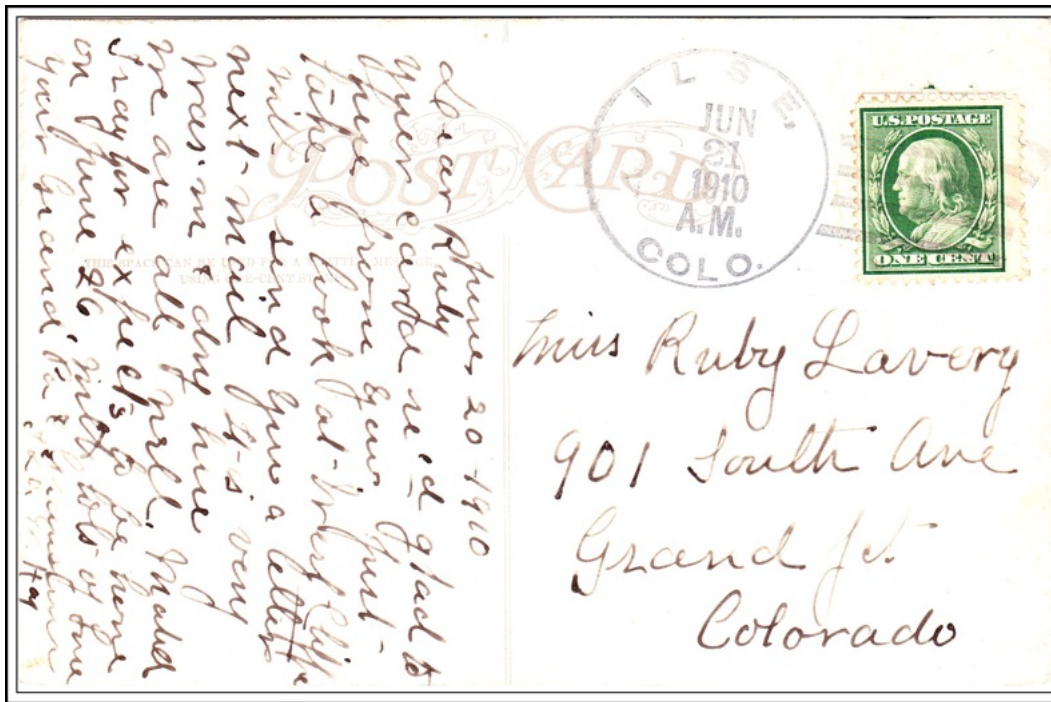 POST CARD
THIS SPACE CAN BE USED FOR A WRITTEN MESSAGE,
USING ONE-CENT STAMP
ILSE,
JUN
21
1910
A.M.
COLO.
U.S. POSTAGE
ONE CENT
Miss Ruby Lavery
901 South Ave
Grand Jct
Colorado
June, 20 1910
Dear Ruby
Your card rec'd glad to
have from you just
take a look at
will send you a letter
next mail it-s very
warm & dry here
we are all well. Maud
Gray for expects to be here
on June 26. With lots of love
your Grand Pa &